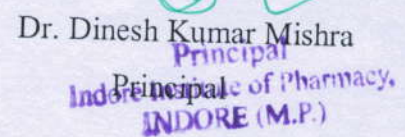 Dr. Dinesh Kumar Mishra
Principal
Principal
Indore Institute of Pharmacy,
INDORE (M.P.)